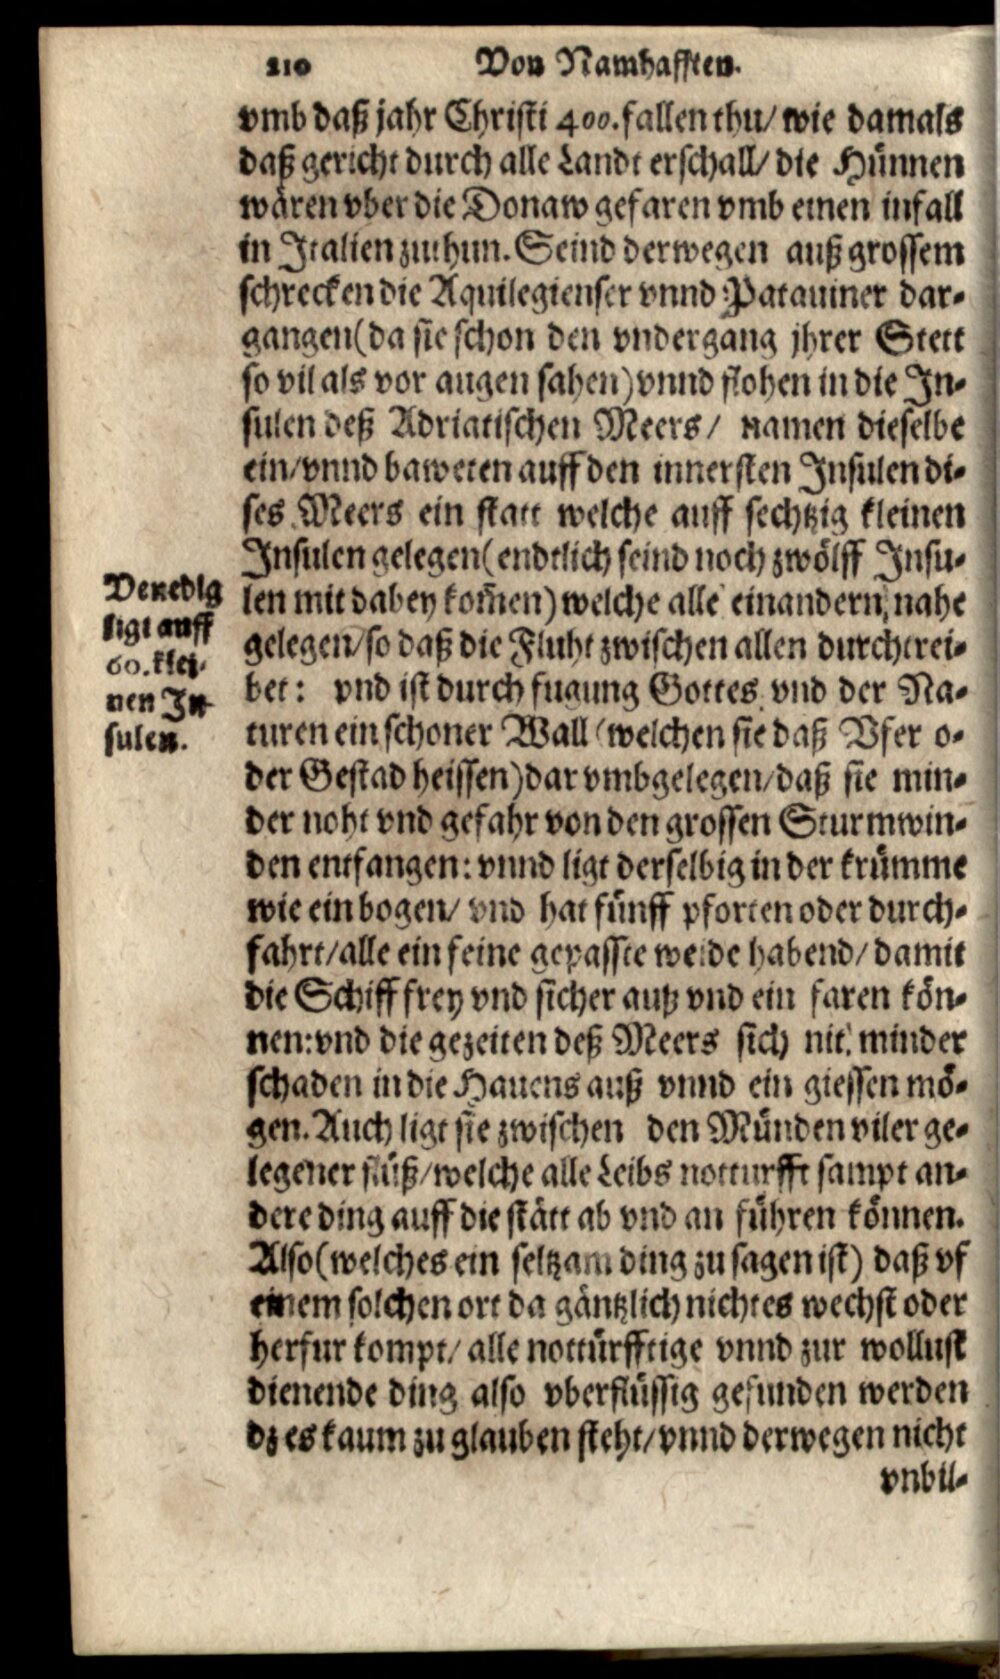 210 Von Namhafften.
vmb daß jahr Christi 400. fallen thu/ wie damals
daß gericht durch alle Landt erschall/ die Hünnen
wären vber die Donaw gefaren vmb einen infall
in Italien zuthun. Seind derwegen auß grossem
schrecken die Aquilegienser vnnd Patauiner dar-
gangen (da sie schon den vndergang jhrer Stett
so vil als vor augen sahen) vnnd flohen in die In-
sulen deß Adriatischen Meers/ namen dieselbe
ein/ vnnd baweten auff den innersten Insulen di-
ses Meers ein statt welche auff sechtzig kleinen
Insulen gelegen (endtlich seind noch zwölff Insu-
len mit dabey kom̃en) welche alle einandern nahe
gelegen/ so daß die Fluht zwischen allen durchtrei-
bet: vnd ist durch fugung Gottes vnd der Na-
turen ein schoner Wall (welchen sie daß Vfer o-
der Gestad heissen) dar vmbgelegen/ daß sie min-
der noht vnd gefahr von den grossen Sturmwin-
den entfangen: vnnd ligt derselbig in der krümme
wie ein bogen/ vnd hat fünff pforten oder durch-
fahrt/ alle ein feine gepasste weide habend/ damit
die Schiff frey vnd sicher autz vnd ein faren kön-
nen: vnd die gezeiten deß Meers sich nit minder
schaden in die Hauens auß vnnd ein giessen mö-
gen. Auch ligt sie zwischen den Münden viler ge-
legener flüß/ welche alle Leibs notturfft sampt an-
dere ding auff die stätt ab vnd an führen können.
Also (welches ein seltzam ding zu sagen ist) daß vf
einem solchen ort da gäntzlich nichtes wechst oder
herfur kompt/ alle nottürfftige vnnd zur wollust
dienende ding also vberflüssig gefunden werden
dz es kaum zu glauben steht/ vnnd derwegen nicht
vnbil-
Venedig
ligt auff
60. klei-
nen In-
sulen.